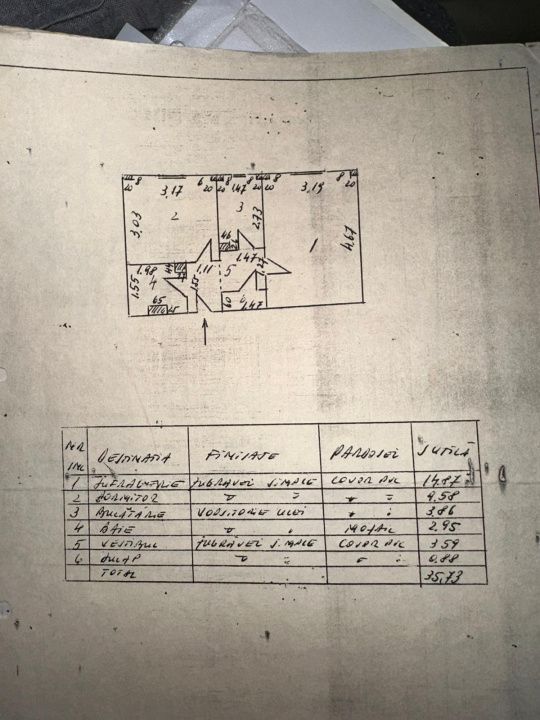 8 6 8 8 8 8
20 3,17 20 20 1,47 20 20 3,19 20
3,03 2 3 2,73 1 4,67
46
1,98 1,11 5 1,47 1,27
1,55 4
65 15 60 6 1,47
NR INC DESTINATIA FINISAJE PARDOSELI S UTILĂ
1 SUFRAGERIE ZUGRAVELI SIMPLE COVOR PVC 14,87
2 DORMITOR " " " " 9,58
3 BUCĂTĂRIE VOPSITORIE ULEI " " 3,86
4 BAIE " " MOZAIC 2,95
5 VESTIBUL ZUGRĂVELI SIMPLE COVOR PVC 3,59
6 DULAP " " " " 0,88
TOTAL 35,73